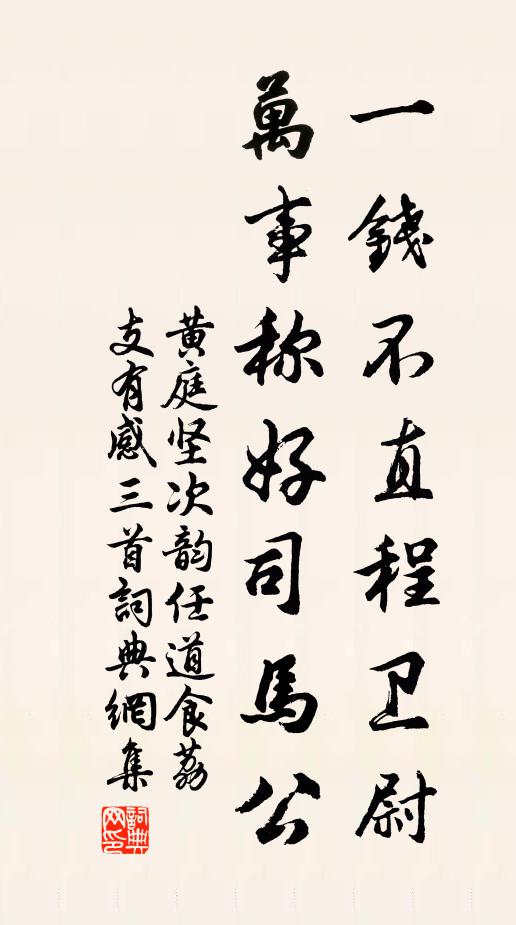 一錢不直程卫尉
萬事称好司馬公
黄庭坚次韵任道食荔
支有感三首詞典網集
詞典網印